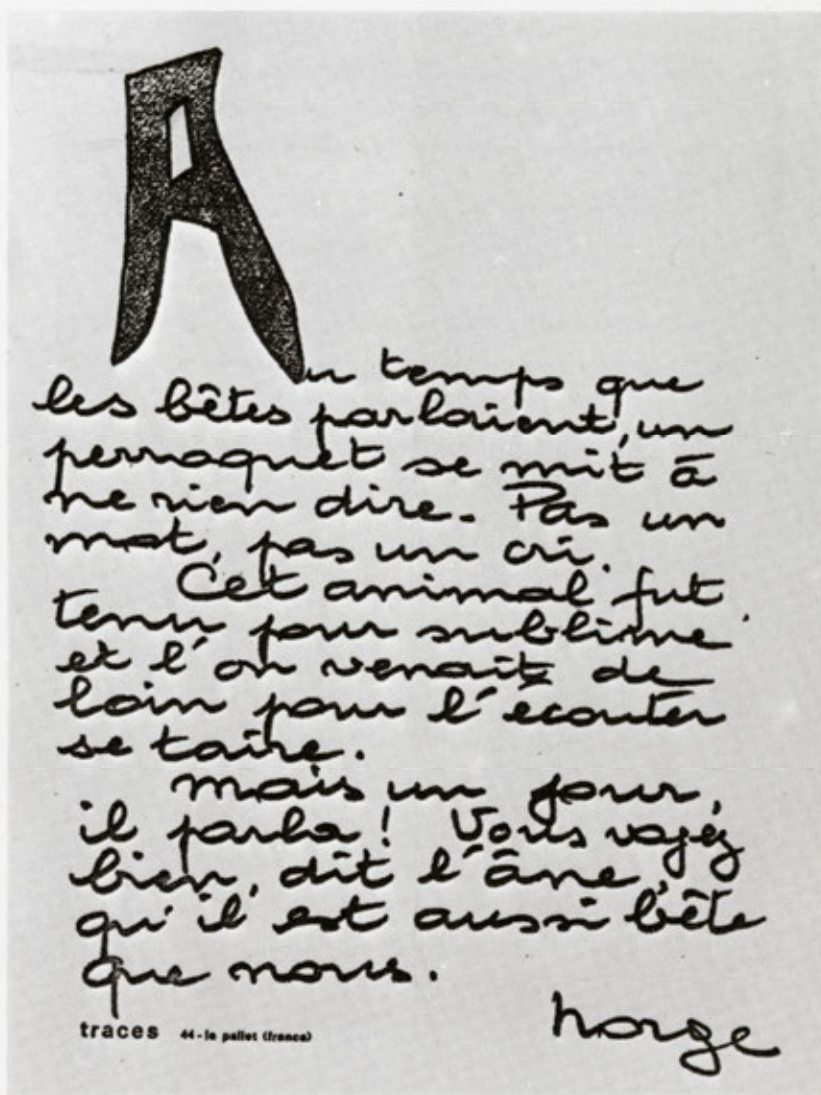 Au temps que
les bêtes parlaient, un
perroquet se mit à
ne rien dire. Pas un
mot, pas un cri.
Cet animal fut
tenu pour sublime
et l'on venait de
loin pour l'écouter
se taire.
Mais un jour,
il parla ! Vous voyez
bien, dit l'âne,
qu'il est aussi bête
que nous.
norge
traces 44 - le pallet (france)